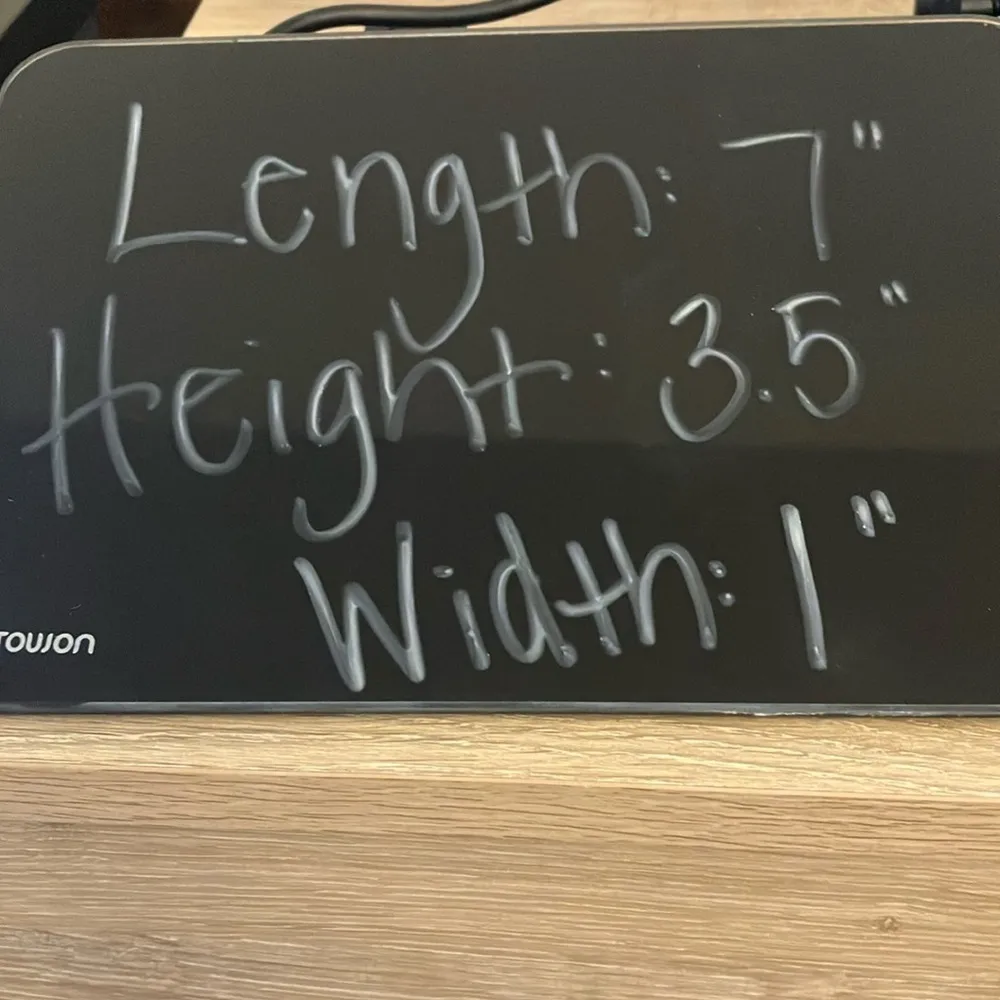 Length: 7"
Height: 3.5"
Width: 1"
TOUJON